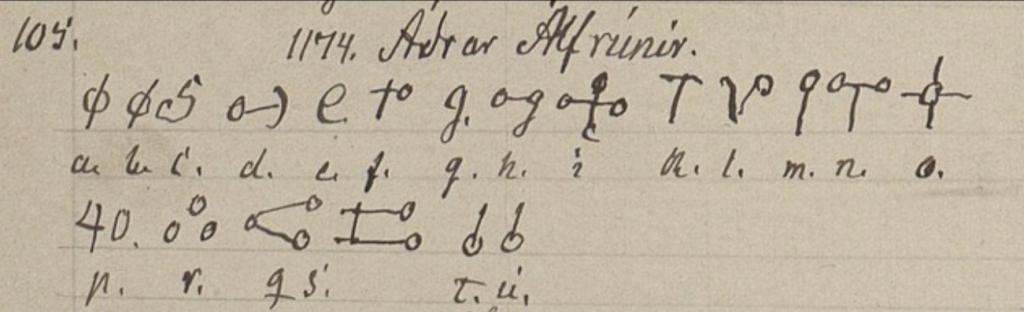 105. 1174. Aðrar Álfrúnir.
a. b. c. d. e. f. g. h. i k. l. m. n. o.
40.
p. r. q s. t. u.